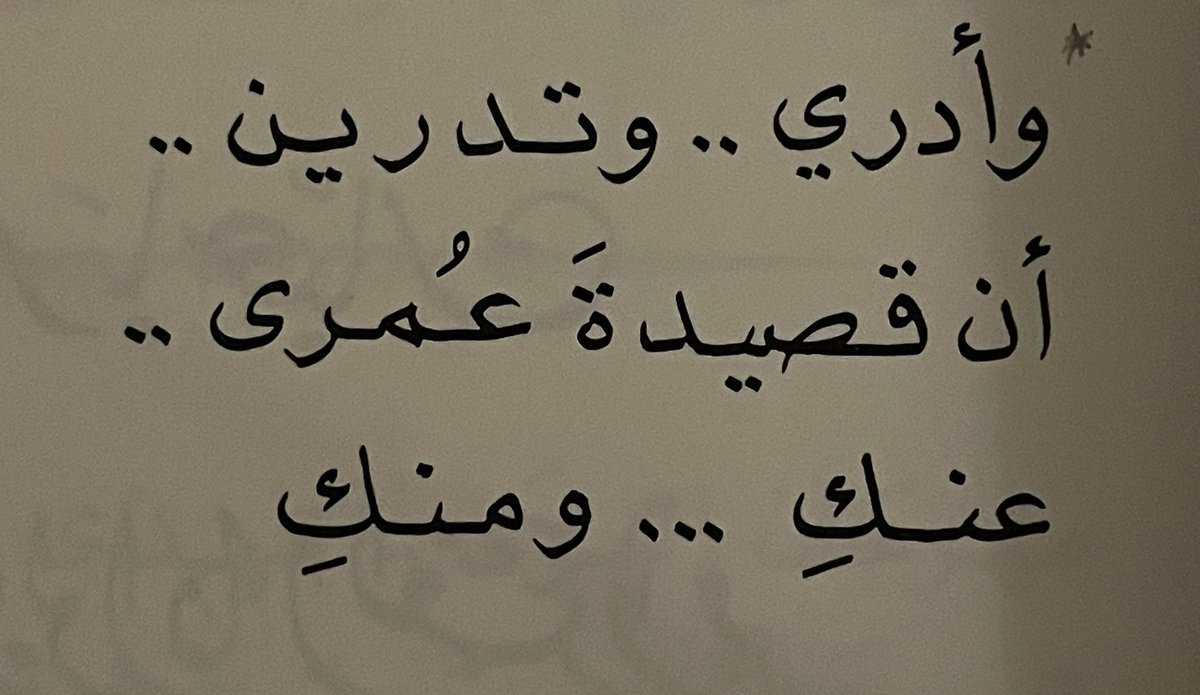 وأدري .. وتدرين ..
أن قصيدةَ عُمرى ..
عنكِ ... ومنكِ